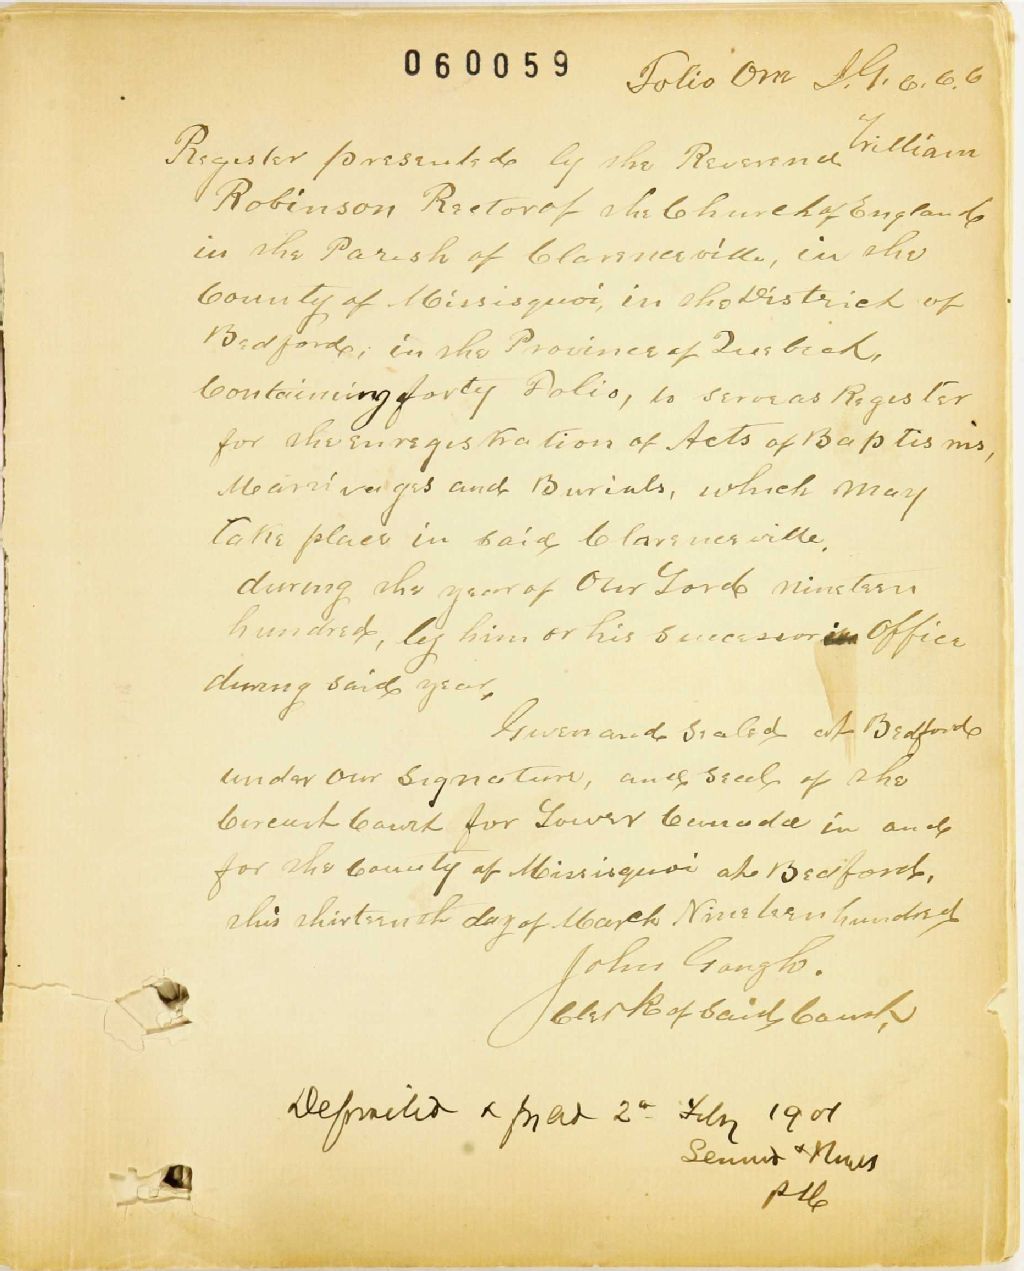 060059
Folio One J.G. C.C.C
Register presented by the Reverend William
Robinson Rector of the Church of England
in the Parish of Clarenceville, in the
County of Missisquoi, in the District of
Bedford, in the Province of Quebeck,
Containing forty Folio, to serve as Register
for the enregistration of Acts of Baptisms,
Marriages and Burials, which may
take place in said Clarenceville,
during the year of Our Lord nineteen
hundred, by him or his successor in Office
during said year,
Given and sealed at Bedford
under our signature, and seal of the
Circuit Court for Lower Canada in and
for the County of Missisquoi at Bedford,
this thirteenth day of March Nineteen hundred
John Gough.
Clerk of said Court,
Deposited & fyled 2d Feby 1901
& Noyes